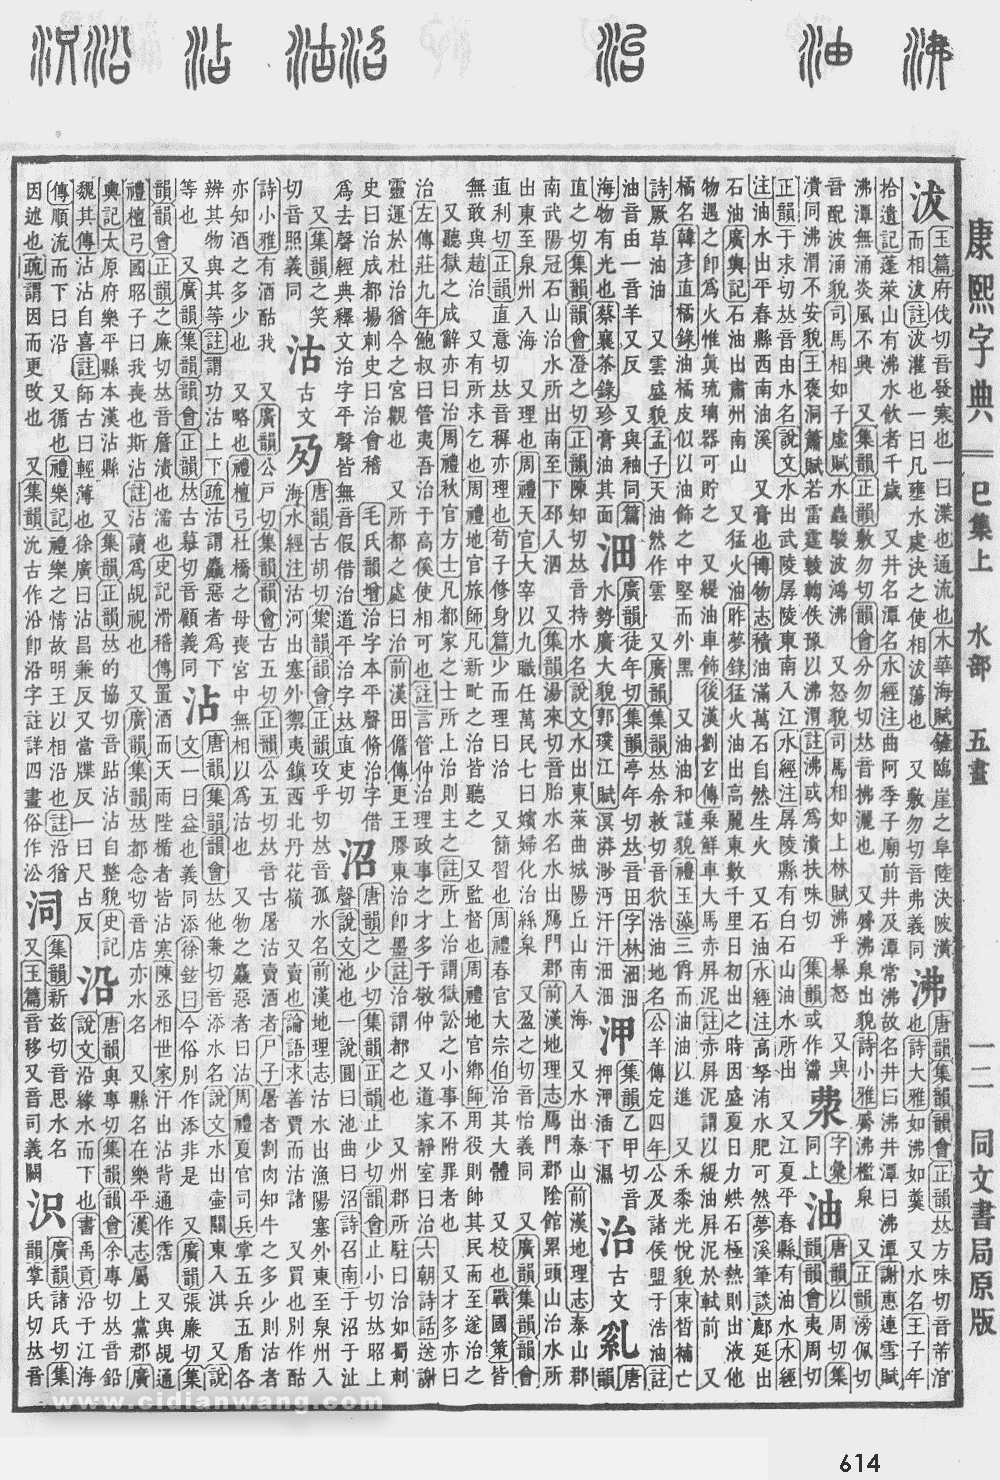 康熙字典 巳集上 水部 五畫 一二 同文書局原版
沷
玉篇府伐切音發寒也一曰渫也通流也木華海賦鏟臨崖之阜陸決陂潢
而相沷註沷灌也一曰凡壅水處決之使相沷蕩也 又敷勿切音弗義同
沸
唐韻集韻韻會正韻𠀤方味切音芾涫
也詩大雅如沸如羹 又水名王子年
拾遺記蓬萊山有沸水飲者千歲 又井名潭名水經注曲阿季子廟前井及潭常沸故名井曰沸井潭曰沸潭謝惠連雪賦
沸潭無涌炎風不興 又集韻正韻敷勿切韻會分勿切𠀤音拂灑也 又觱沸泉出貌詩小雅觱沸檻泉 又正韻滂佩切
音配波涌貌司馬相如子虛賦水蟲駭波鴻沸 又怒貌司馬相如上林賦沸乎暴怒 又與
潰同沸渭不安貌王褒洞簫賦若雷霆輘輷佚豫以沸渭註沸或爲潰扶味切 集韻或作
字彙
同上
油
唐韻以周切集
韻韻會夷周切
正韻于求切𠀤音由水名說文水出武陵孱陵東南入江水經注孱陵縣有白石山油水所出 又江夏平春縣有油水水經
注油水出平春縣西南油溪 又膏也博物志積油滿萬石自然生火 又石油水經注高孥洧水肥可然夢溪筆談鄜延出
石油廣輿記石油出肅州南山 又猛火油昨夢錄猛火油出高麗東數千里日初出之時因盛夏日力烘石極熱則出液他
物遇之卽爲火惟眞琉璃器可貯之 又緹油車飾後漢劉玄傳乘鮮車大馬赤屛泥註赤屛泥謂以緹油屛泥於軾前 又
橘名韓彥直橘錄油橘皮似以油飾之中堅而外黑 又油油和謹貌禮玉藻三爵而油油以進 又禾黍光悅貌束皙補亡
詩厥草油油 又雲盛貌孟子天油然作雲 又廣韻集韻𠀤余救切音狖浩油地名公羊傳定四年公及諸侯盟于浩油註
油音由一音羊又反 又與釉同
海物有光也蔡襄茶錄珍膏油其面
沺
廣韻徒年切集韻亭年切𠀤音田字林沺沺
水勢廣大貌郭璞江賦溟漭渺沔汗汗沺沺
泙
集韻乙甲切音
押泙湁下濕
治
古文
乿
唐韻
直之切集韻韻會澄之切正韻陳知切𠀤音持水名說文水出東萊曲城陽丘山南入海 又水出泰山前漢地理志泰山郡
南武陽冠石山治水所出南至下邳入泗 又集韻湯來切音胎水名水出鴈門郡前漢地理志鴈門郡陰館累頭山治水所
出東至泉州入海 又理也周禮天官大宰以九職任萬民七曰嬪婦化治絲枲 又盈之切音怡義同 又廣韻集韻韻會
直利切正韻直意切𠀤音稺亦理也荀子修身篇少而理曰治 又簡習也周禮春官大宗伯治其大體 又校也戰國策皆
無敢與趙治 又有所求乞也周禮地官旅師凡新甿之治皆聽之 又監督也周禮地官鄕師用役則帥其民而至遂治之
又聽獄之成辭亦曰治周禮秋官方士凡都家之士所上治則主之註所上治謂獄訟之小事不附罪者也 又才多亦曰
治左傳莊九年鮑叔曰管夷吾治于高傒使相可也註言管仲治理政事之才多于敬仲 又道家靜室曰治六朝詩話送謝
靈運於杜治猶今之宮觀也 又所都之處曰治前漢田儋傳更王膠東治卽墨註治謂都之也 又州郡所駐曰治如蜀刺
史曰治成都揚刺史曰治會稽 毛氏韻增治字本平聲脩治字借
爲去聲經典釋文治字平聲皆無音假借治道平治字𠀤直吏切
沼
唐韻之少切集韻正韻止少切韻會止小切𠀤昭上
聲說文池也一說圓曰池曲曰沼詩召南于沼于沚
又集韻之笑
切音照義同
沽
古文
夃
唐韻古胡切集韻韻會正韻攻乎切𠀤音孤水名前漢地理志沽水出漁陽塞外東至泉州入
海水經注沽河出塞外禦夷鎭西北丹花嶺 又賣也論語求善賈而沽諸 又買也別作酤
詩小雅有酒酤我 又廣韻公戸切集韻韻會古五切正韻公五切𠀤音古屠沽賣酒者尸子屠者割肉知牛之多少則沽者
亦知酒之多少也 又略也禮檀弓杜橋之母喪宮中無相以爲沽也 又物之麤惡者曰沽周禮夏官司兵掌五兵五盾各
辨其物與其等註謂功沽上下疏沽謂麤惡者爲下
等也 又廣韻集韻韻會正韻𠀤古慕切音顧義同
沾
唐韻集韻韻會𠀤他兼切音添水名說文水出壺關東入淇 又說
文一曰益也義同添徐鉉曰今俗別作添非是 又廣韻張廉切集
韻韻會正韻之廉切𠀤音詹漬也濡也史記滑稽傳置酒而天雨陛楯者皆沾寒陳丞相世家汗出沾背通作霑 又與覘通
禮檀弓國昭子曰我喪也斯沾註沾讀爲覘視也 又廣韻集韻𠀤都念切音店亦水名 又縣名在樂平漢志屬上黨郡廣
輿記太原府樂平縣本漢沾縣 又集韻正韻𠀤的協切音跕沾沾自整貌史記
魏其傳沾沾自喜註師古曰輕薄也徐廣曰沾昌兼反又當牒反一曰尺占反
沿
唐韻與專切集韻韻會余專切𠀤音鉛
說文沿緣水而下也書禹貢沿于江海
傳順流而下曰沿 又循也禮樂記禮樂之情故明王以相沿也註沿猶
因述也疏謂因而更改也 又集韻沇古作沿卽沿字註詳四畫俗作㳂
泀
集韻新兹切音思水名
又玉篇音移又音司義闕
泜
廣韻諸氏切集
韻掌氏切𠀤音
www.cidianwang.com
614